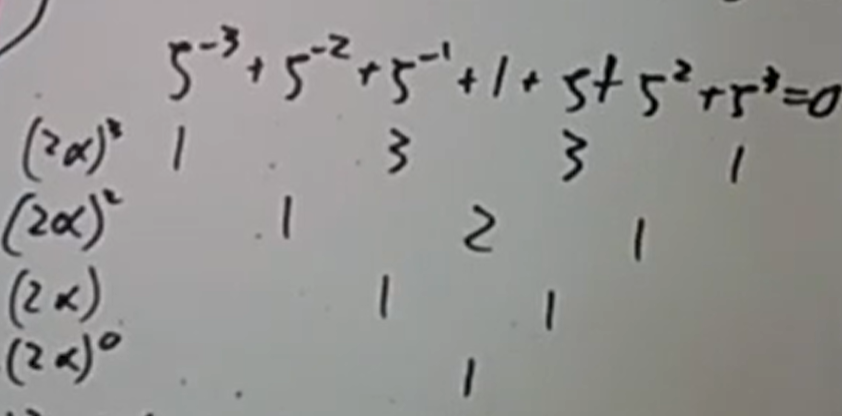 ζ⁻³ + ζ⁻² + ζ⁻¹ + 1 + ζ + ζ² + ζ³ = 0
(2α)³ 1 3 3 1
(2α)² 1 2 1
(2α) 1 1
(2α)⁰ 1